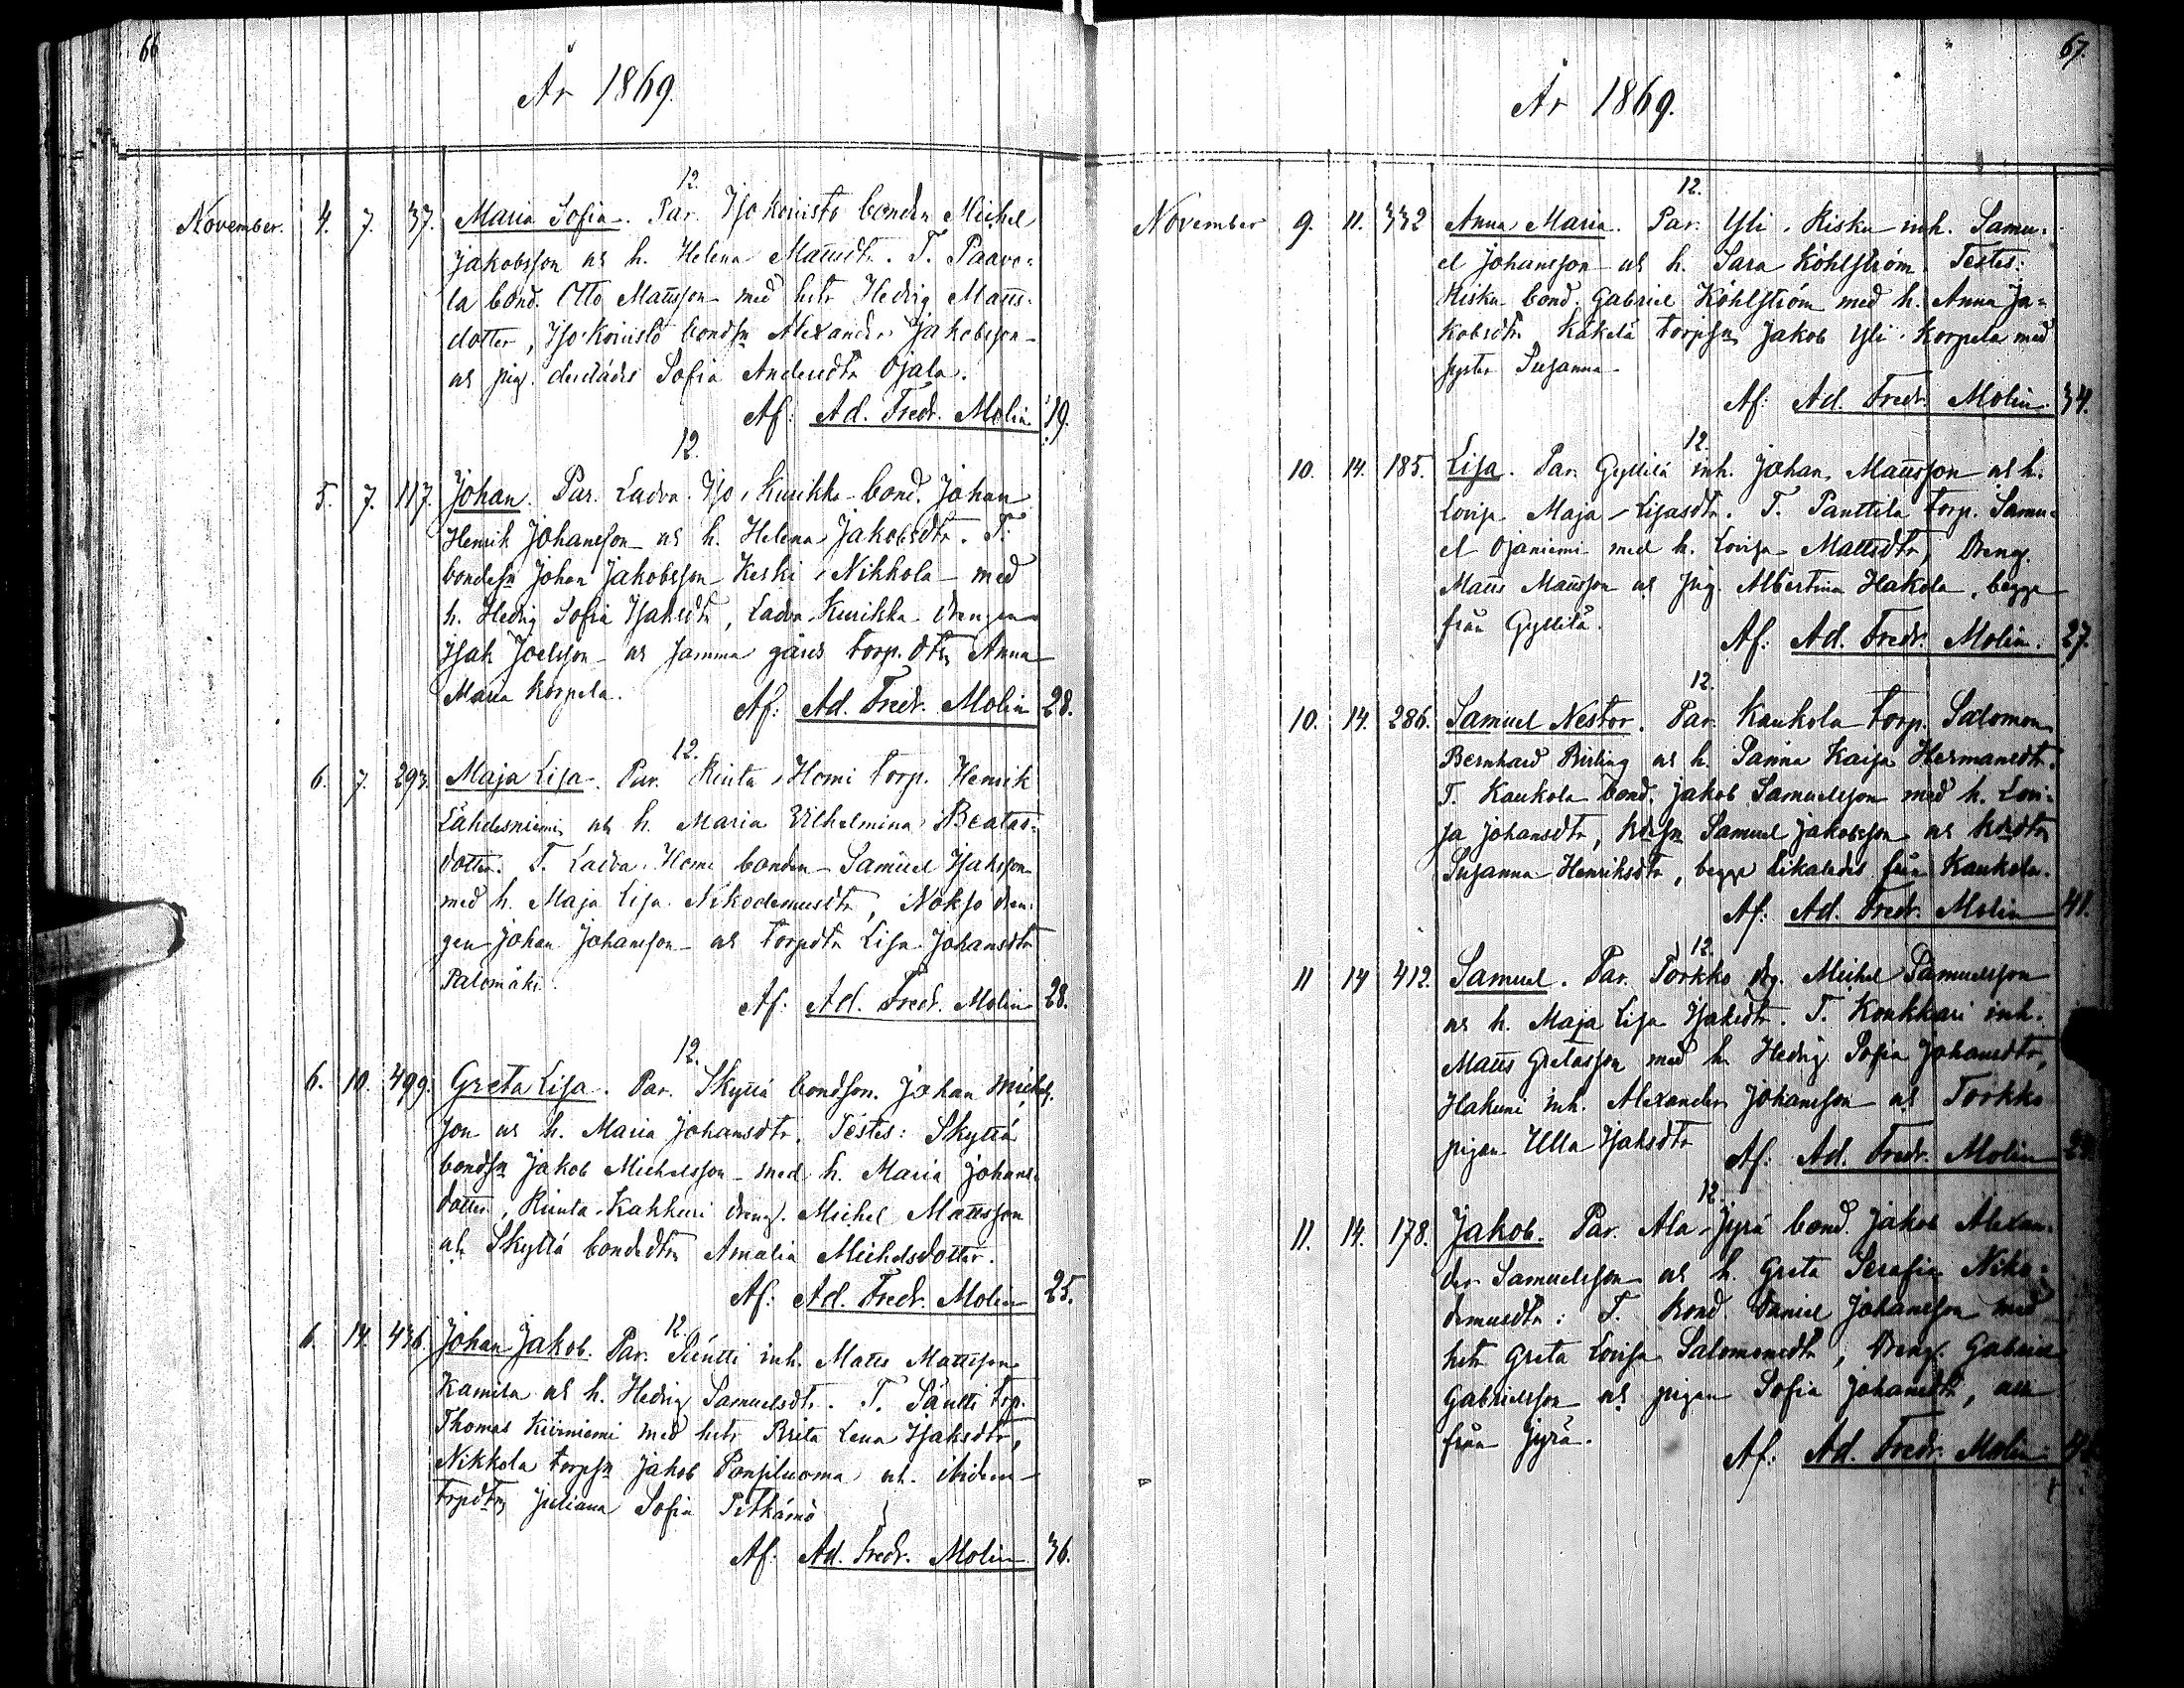 66
År 1869.
12.
November. 4. 7. 37. Maria Sofia. Par. Iso Koivisto bonden Michel
Jakobsson och h. Helena Mattsdtr. T. Paavo-
la bond. Otto Mattsson med hstr Hedvig Matts-
dotter, Iso Koivisto bondsn Alexander Jakobsson
och pig. dersädes Sofia Andersdtr Ojala.
Af: Ad. Fredr. Molin. 19.
12.
5. 7. 117. Johan. Par. Ladva Iso Kurikka bond. Johan
Henrik Johansson och h. Helena Jakobsdtr. T.
bondesn Johan Jakobsson Keski Nikkola med
h. Hedvig Sofia Isaksdtr, Ladva Kurikka drengen
Isak Joelsson och samma gårds torp.dtr Anna
Maria Korpela.
Af: Ad. Fredr. Molin 28.
12.
6. 7. 293. Maja Lisa. Par. Rinta Homi torp. Henrik
Lähdesniemi och h. Maria Vilhelmina Beatas-
dotter. T. Ladva Homi bonden Samuel Isaksson
med h. Maja Lisa Nikodemusdtr, Nokso dren-
gen Johan Johansson och torpdtr Lisa Johansdtr
Palomäki.
Af: Ad. Fredr. Molin 28.
12.
6. 10. 499. Greta Lisa. Par. Skyttä bondson. Johan Michels-
son och h. Maria Johansdtr. Testes: Skyttä
bondsn Jakob Michelsson med h. Maria Johans-
dotter, Rinta Kakkuri dreng. Michel Mattsson
och Skyttä bondedtr Amalia Michelsdotter.
Af: Ad. Fredr. Molin 25.
12.
6. 14. 436. Johan Jakob. Par. Säntti inh. Matts Mattsson
Kamila och h. Hedvig Samuelsdtr. T. Säntti torp.
Thomas Kiviniemi med hstr Brita Lena Isaksdtr,
Nikkola torpsn Jakob Pansiluoma och ibidem
torpdtr Juliana Sofia Pitkämö
Af: Ad. Fredr. Molin 36.
67.
År 1869.
12.
November 9. 11. 332 Anna Maria. Par. Yli Risku inh. Samu-
el Johansson och h. Sara Köhlström. Testes:
Risku bond. Gabriel Köhlström med h. Anna Ja-
kobsdtr. Käkelä torpsn Jakob Yli Korpela med
syster Susanna
Af: Ad. Fredr. Molin 34.
12.
10. 14. 185. Lisa. Par. Gyllilä inh. Johan Mattsson och h.
Lovisa Maja Lisasdtr. T. Panttila torp. Samu-
el Ojaniemi med h. Lovisa Mattsdtr, Dreng.
Matts Mattsson och pig. Albertina Hakola, begge
från Gyllilä.
Af: Ad. Fredr. Molin. 27.
12.
10. 14. 286. Samuel Nestor. Par. Kaukola torp. Salomon
Bernhard Birling och h. Sanna Kaisa Hermansdtr.
T. Kaukola bond. Jakob Samuelsson med h. Lovi-
sa Johansdtr, Samuel Jakobsson och
Susanna Henriksdtr, begge likaledes från Kaukola.
Af: Ad. Fredr. Molin 41.
12.
11 14 412. Samuel. Par. Torkko drg. Michel Samuelsson
och h. Maja Lisa Isaksdtr. T. Koukkari inh.
Matts Gretasson med h. Hedvig Sofia Johansdtr,
Hakuni inh. Alexander Johansson och Torkko
pigan Ulla Isaksdtr
Af: Ad. Fredr. Molin
12.
11. 14. 178. Jakob. Par. Ala Jyrä bond. Jakob Alexan-
der Samuelsson och h. Greta Serafia Niko-
demusdtr: T. Bond. Daniel Johansson med
hstr Greta Lovisa Salomonsdtr, Dreng. Gabriel
Gabrielsson och pigan Sofia Johansdtr, alla
från Jyrä.
Af: Ad. Fredr. Molin